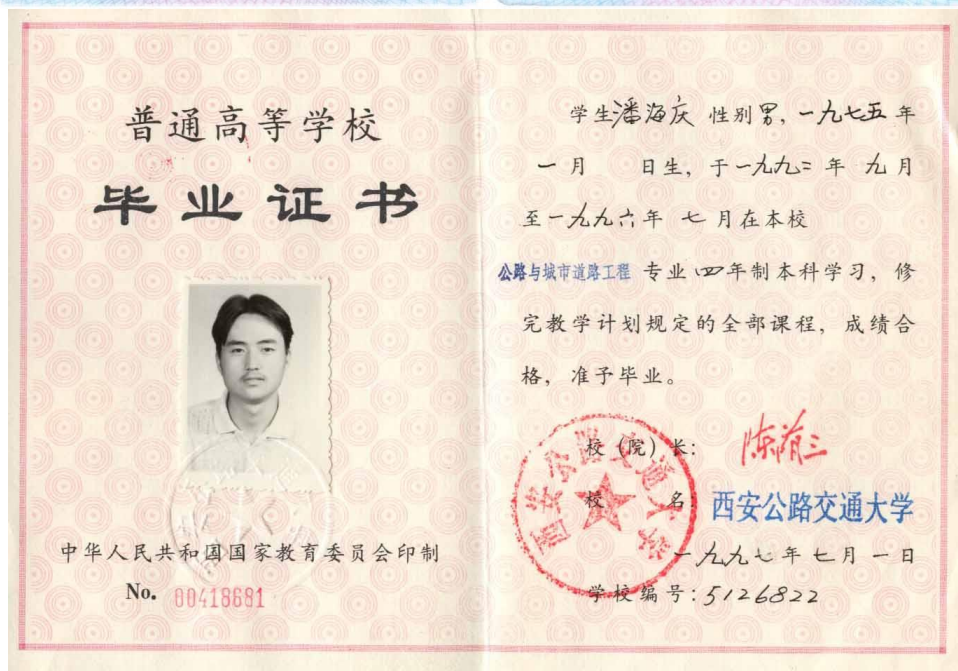 普通高等学校
毕业证书
中华人民共和国国家教育委员会印制
No. 00418681
学生潘海庆 性别男，一九七五年
一月 日生，于一九九二年 九月
至一九九六年 七月在本校
公路与城市道路工程 专业 四年制本科学习，修
完教学计划规定的全部课程，成绩合
格，准予毕业。
校（院）长：
校 名：西安公路交通大学
西安公路交通大学
一九九七年七月一日
学校编号：5126822